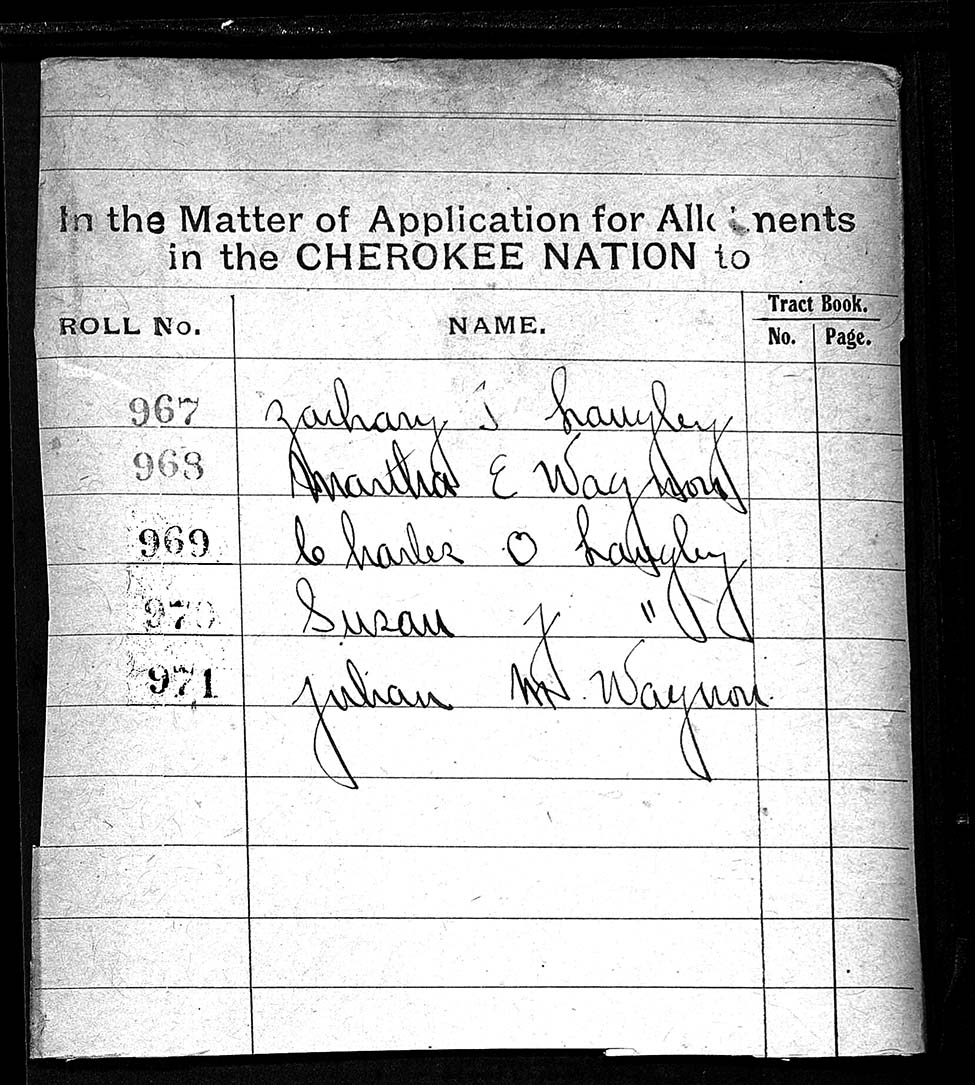 In the Matter of Application for Allotments
in the CHEROKEE NATION to
ROLL No. NAME. Tract Book.
No. Page.
967 Zachary T Langley
968 Martha E Waynon
969 Charles O Langley
970 Susan J "
971 Julian M. Waynon.